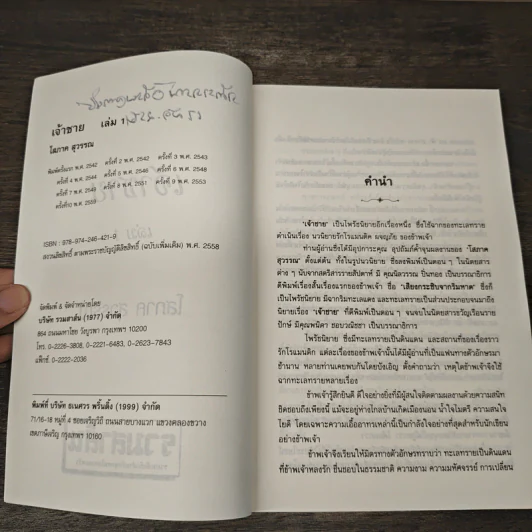 เจ้าซาย เล่ม 1
โสภาค สุวรรณ
พิมพ์ครั้งแรก พ.ศ. 2542 ครั้งที่ 2 พ.ศ. 2542 ครั้งที่ 3 พ.ศ. 2543
ครั้งที่ 4 พ.ศ. 2544 ครั้งที่ 5 พ.ศ. 2546 ครั้งที่ 6 พ.ศ. 2548
ครั้งที่ 7 พ.ศ. 2549 ครั้งที่ 8 พ.ศ. 2551 ครั้งที่ 9 พ.ศ. 2553
ครั้งที่10 พ.ศ. 2559
ISBN : 978-974-246-421-9
สงวนลิขสิทธิ์ ตามพระราชบัญญัติลิขสิทธิ์ (ฉบับเพิ่มเติม) พ.ศ. 2558
จัดพิมพ์ & จัดจำหน่ายโดย
บริษัท รวมสาส์น (1977) จำกัด
864 ถนนมหาไชย วังบูรพา กรุงเทพฯ 10200
โทร. 0-2226-3808, 0-2221-6483, 0-2623-7843
แฟ็กซ์. 0-2222-2036
พิมพ์ที่ บริษัท ธเนศวร พริ้นติ้ง (1999) จำกัด
71/16-18 หมู่ที่ 4 ซอยเจริญวิถี ถนนสายบางแวก แขวงคลองขวาง
เขตภาษีเจริญ กรุงเทพฯ 10160
คำนำ
"เจ้าซาย" เป็นไพรัชนิยายอีกเรื่องหนึ่ง ซึ่งใช้ฉากของทะเลทราย
ดำเนินเรื่อง นวนิยายรักโรแมนติค ผจญภัย ของข้าพเจ้า
ท่านผู้อ่านซึ่งได้มีอุปการะคุณ อุปถัมภ์ค้ำจุนผลงานของ "โสภาค
สุวรรณ" ตั้งแต่ต้น ทั้งในรูปนวนิยาย ซึ่งลงพิมพ์เป็นตอน ๆ ในนิตยสาร
ต่าง ๆ นับจากสตรีสารรายสัปดาห์ มี คุณนิลวรรณ ปิ่นทอง เป็นบรรณาธิการ
ตีพิมพ์เรื่องสั้นเรื่องแรกของข้าพเจ้า ชื่อ "เสียงกระซิบจากริมหาด" ซึ่งก็
เป็นไพรัชนิยาย มีฉากริมทะเลแดง และทะเลทรายเป็นส่วนประกอบจนมาถึง
นิยายเรื่อง "เจ้าซาย" ที่ตีพิมพ์เป็นตอน ๆ จนจบในนิตยสารขวัญเรือนราย
ปักษ์ มีคุณพนิดา ชอบวณิชชา เป็นบรรณาธิการ
ไพรัชนิยาย ซึ่งมีทะเลทรายเป็นดินแดน และสถานที่ของเรื่องราว
รักโรแมนติก แต่ละเรื่องของข้าพเจ้านั้นได้มีผู้อ่านที่เป็นแฟนทางตัวอักษรมา
ช้านาน หลายท่านเคยพบกันโดยบังเอิญ ตั้งคำถามว่า เหตุใดข้าพเจ้าจึงใช้
ฉากทะเลทรายหลายเรื่อง
ข้าพเจ้ารู้สึกยินดี ดีใจอย่างยิ่งที่มีผู้สนใจติดตามผลงานด้วยความสนิท
ชิดชอบถึงเพียงนี้ แม้จะอยู่ห่างไกลบ้านเกิดเมืองนอน น้ำใจไมตรี ความสนใจ
ใยดี โดยเฉพาะความเอื้ออาทรเหล่านี้เป็นกำลังใจอย่างที่สุดสำหรับนักเขียน
อย่างข้าพเจ้า
ข้าพเจ้าจึงเรียนให้มิตรทางตัวอักษรทราบว่า ทะเลทรายเป็นดินแดน
ที่ข้าพเจ้าหลงรัก ชื่นชอบในธรรมชาติ ความงาม ความมหัศจรรย์ การเปลี่ยน